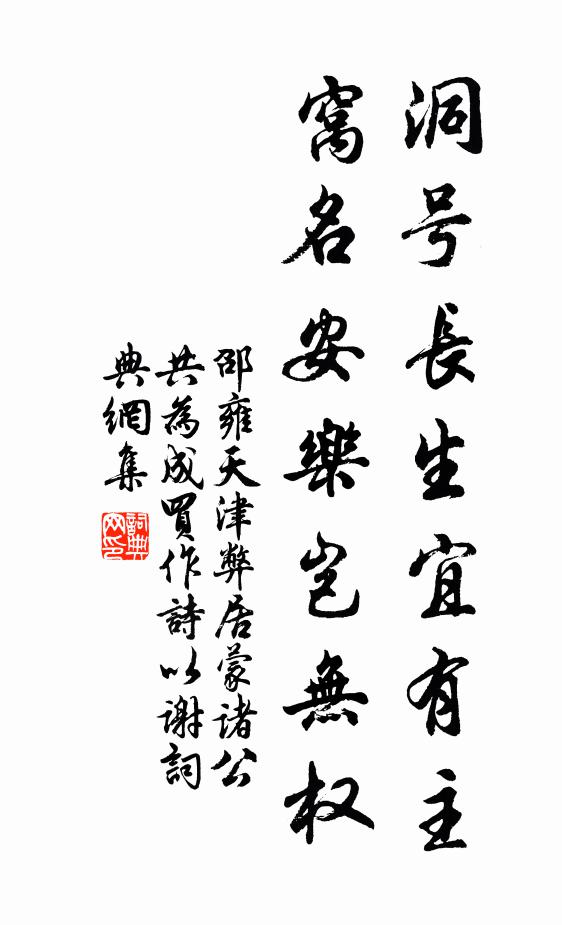 洞号長生宜有主
窩名安樂豈無权
邵雍天津弊居蒙诸公
共為成買作詩以謝詞
典網集
詞典网印